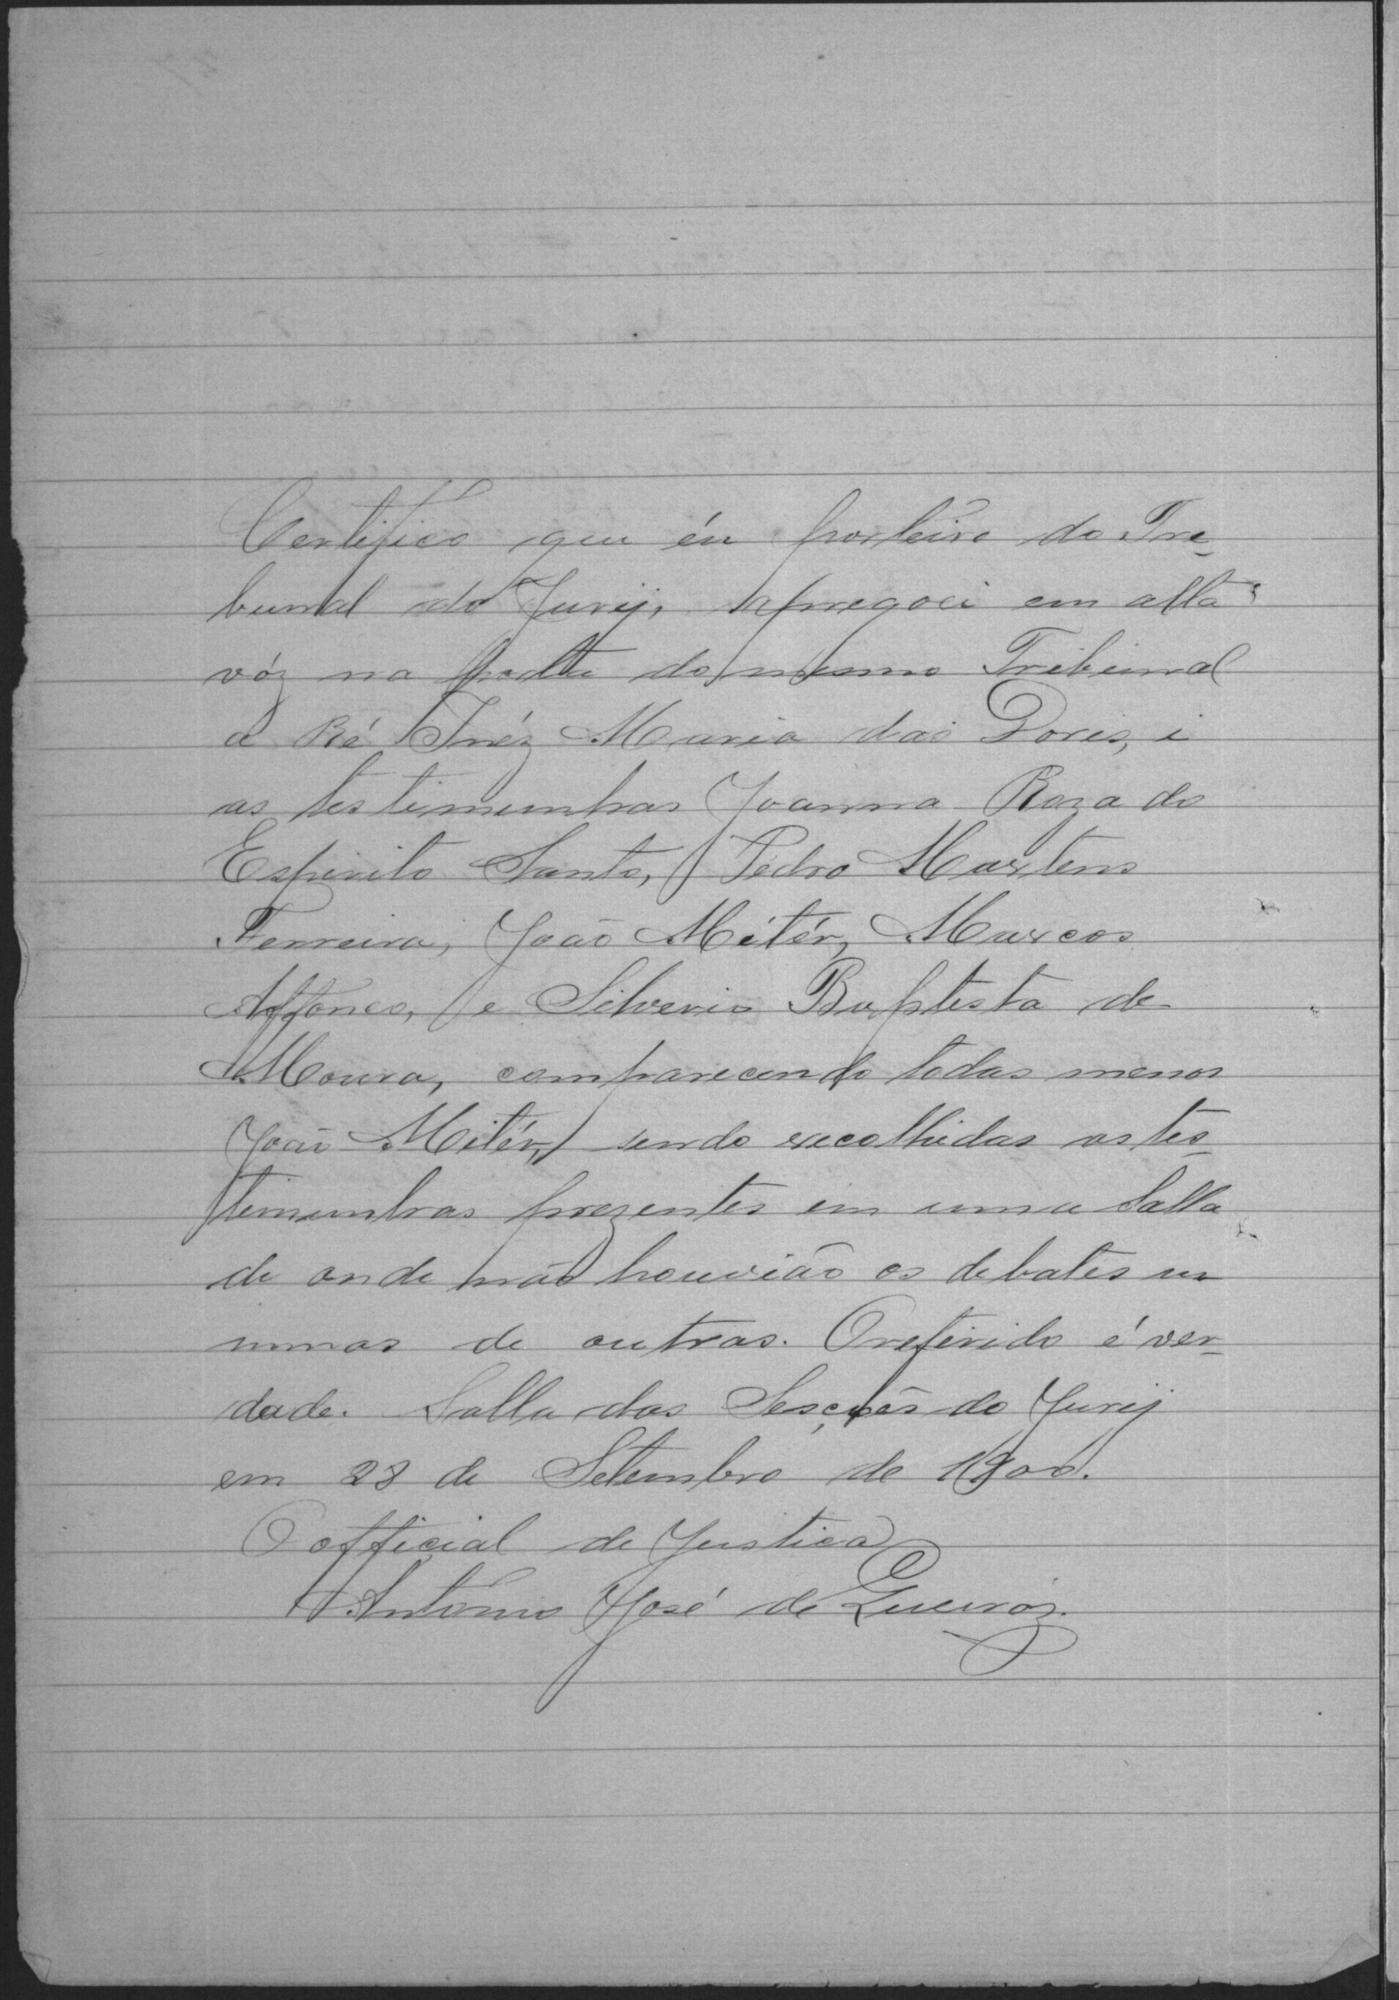 Certifico que éu porteiro do Tre-
bunal do Jurij, apregoei em alta
vóz na porta do mesmo Tribunal
a Ré Inéz Maria das Dores, i
as testimunhas Joanna Roza do
Espirito Santo, Pedro Martens
Ferreira, João Mitér, Marcos
Affonço, e Silverio Baptista de
Moura, comparecendo todas menos
João Mitér, sendo recolhidas as tes-
timunhas prezentes em uma Salla
de onde não houvião os debates
umas de outras. O referido é ver-
dade. Salla das Sesções do Jurij
em 28 de Setembro de 1900.
O official de Justica
Antonio José de Queiróz.